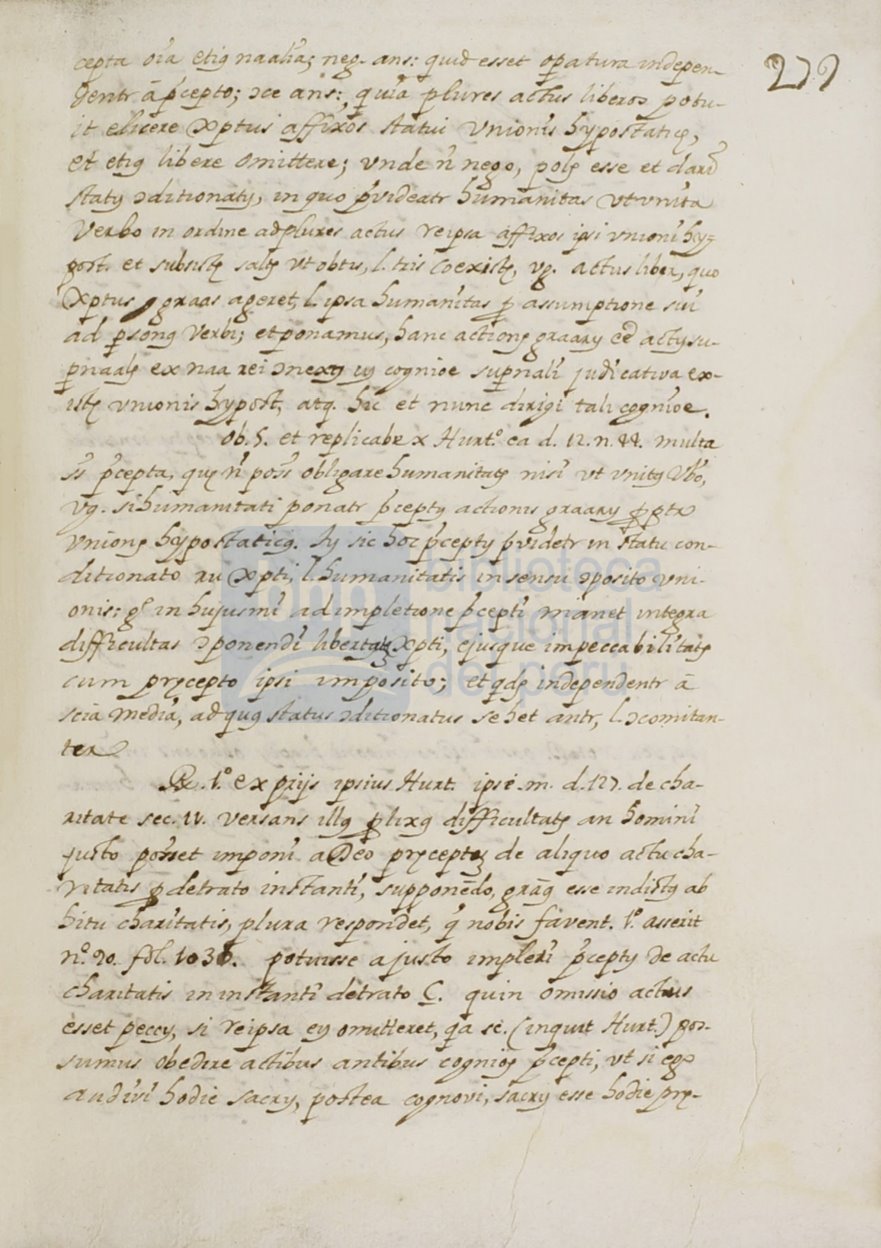 279
cepta oĩa etiȝ naalia; neg. ans: quid esset opatura indepen-
denti à p̃cepto; ɔce ans:, quia plures actus liberos potu-
it elicere Xptus affixos statui Unionis hypostaticę,
et etiȝ libere omittere; unde ñ nego, poße esse et dari
statȝ ɔditionatȝ, in quo p̃videatr humanitas ut unita
Verbo in ordine ad plures actus reipsa affixos ipsi unioni hy-
post. et subsistȝ saltȝ ut obtus, l. tris coexistȝ, vg. actus liber, quo
Xptus graas ageret, l. ipsa humanitas p assumptione sui
ad psonȝ Verbi; et ponamus, hanc actionȝ graarȝ eē actȝ su-
pnaalȝ ex naa rei ɔnexȝ cȝ cognioe supnali judicativa ex-
istȝ unionis hypost, atq. hic et nunc dirigi tali cognioe.
Ob. 5. et replicabr x Hurt.º ea d. 12. n. 88. multa
st̃ p̃cepta, quȩ ñ poss̃ obligare humanitatȝ nisi ut unitȝ Vbo,
vg. si humanitati ponatr p̃ceptȝ actionis graarȝ p ptr
unionȝ hypostaticȝ. Sȝ sic hoc p̃ceptȝ p̃videtr in statu con-
ditionato xu Xpti, l. humanitatis in sensu ɔposito uni-
onis: gº in hujusmi adimpletione p̃cepti manet integra
difficultas ɔponendi libertatȝ Xpti, ejusque impeccabilitatȝ
cum pręcepto ipsi imposito; et qdȝ independentr à
scia media, ad quȝ status ɔditionatus se het antr, l. ɔcomitan-
ter
R. 1.º ex prijs ipsius Hurt. ipse m. d. 127. de cha-
ritate sec. 11. versans illȝ plixȝ difficultatȝ an homini
justo posset imponi a Deo pręceptȝ de aliquo actu cha-
ritatis p detrato instanti, supponēdo, gratȝ esse indistȝ ab
hitu charitatis, plura respondet, q̃ nobis favent. 1.º asserit
n.º 90. fol. 1036. potuisse a justo impleri p̃ceptȝ de actu
charitatis in instanti detrato C. quin omissio actus
esset peccȝ, si reipsa eȝ omitteret, qa sc. (inquit Hurt.) pos-
sumus obedire actibus antibus cognioȝ p̃cepti, ut si ego
audivi hodie sacrȝ, postea cognovi, sacrȝ esse hodie prę-
biblioteca
nacional
del perú